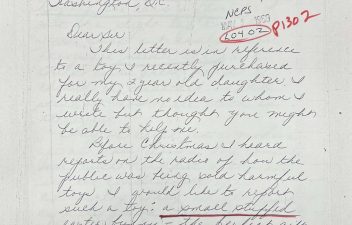 Washington, D.C.
NCPS
60402
P1302
Dear Sir
This letter is in reference
to a toy I recently purchased
for my 2 year old daughter. I
really have no idea to whom I
write but thought you might
be able to help me.
Before Christmas I heard
reports on the radio of how the
public was being sold harmful
toys I would like to report
such a toy: a small stuffed
bunny - the perfect gift